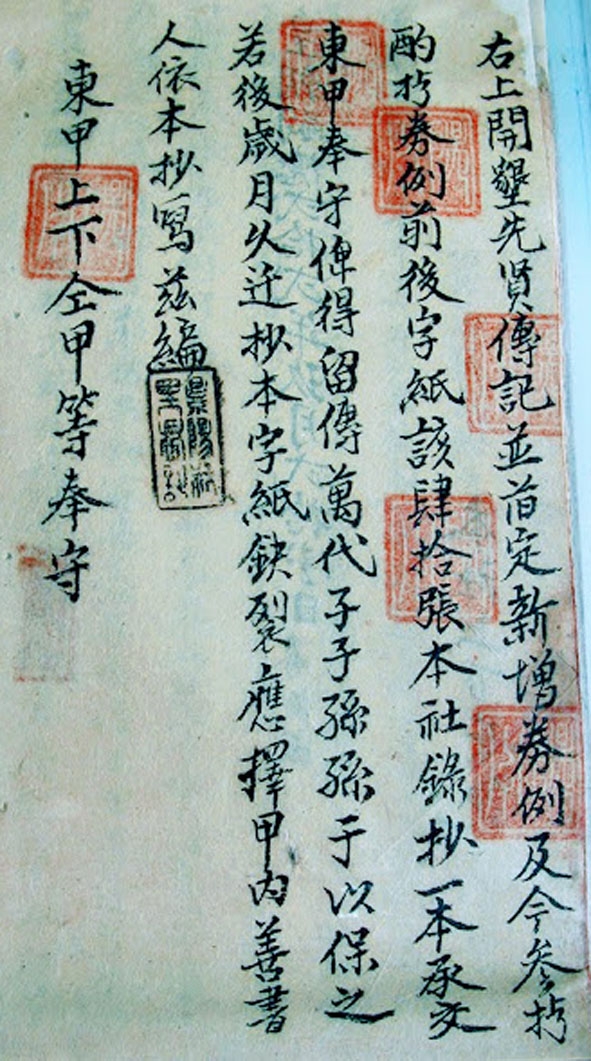 右上開墾先賢傳記並苜定新增券例及今叅扵
酌扵券例前後字紙該肆拾張本社錄抄一本承交
東甲奉守俾得留傳萬代子子孫孫于以保之
若後歲月久迁抄本字紙缺裂應擇甲內善書
人依本抄寫茲編
東甲上下仝甲等奉守